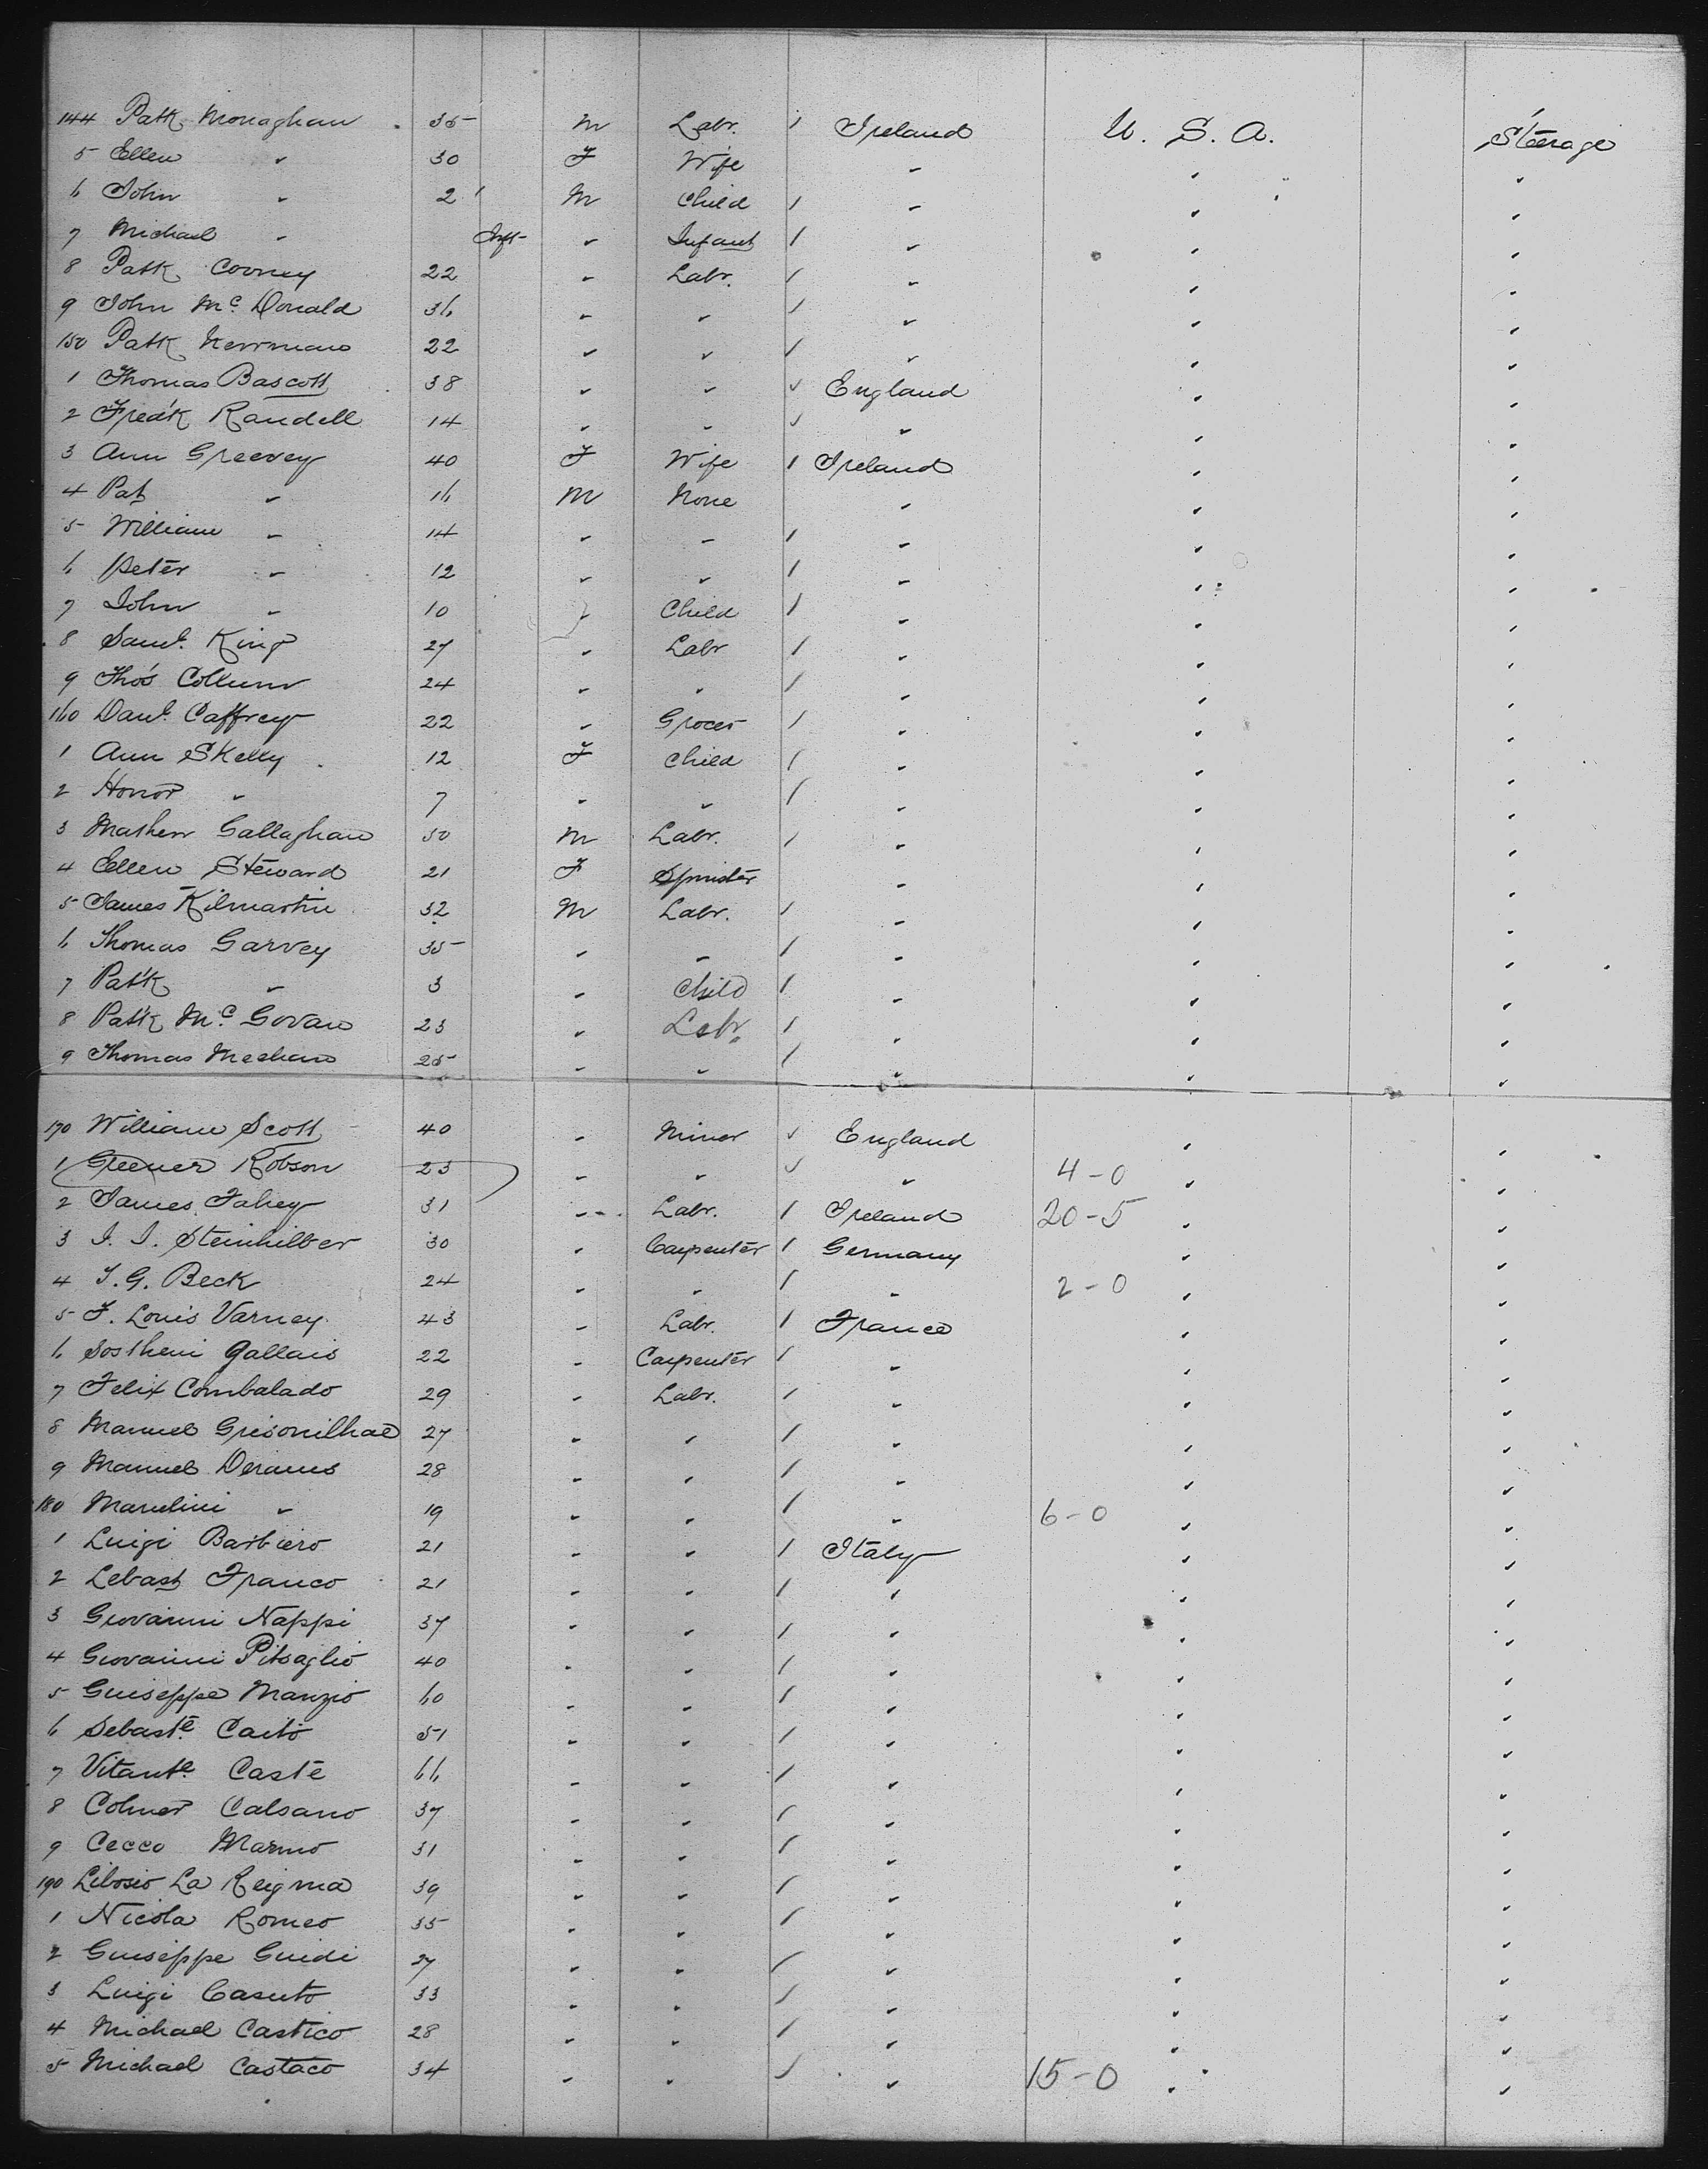 144 Patk Monaghan 35 M Labr. / Ireland U. S. A. Steerage
5 Ellen " 30 F Wife " " "
6 John " 2 M Child / " " "
7 Michael " Inft " Infant / " " "
8 Patk Cooney 22 " Labr. / " " "
9 John Mc Donald 36 " " / " " "
150 Patk 22 " " / " " "
1 Thomas Bascott 38 " " ✓ England " "
2 Fredk Randell 14 " " ✓ " " "
3 Ann Greevey 40 F Wife / Ireland " "
4 Pat " 16 M None " " "
5 William " 14 " " / " " "
6 Peter " 12 " " / " " "
7 John " 10 " Child / " " "
8 Saml. King 27 " Labr / " " "
9 Thos Collum 24 " " / " " "
160 Danl. Caffrey 22 " Grocer / " " "
1 Ann Skelly 12 F Child / " " "
2 Honor " 7 " " / " " "
3 Mathew Gallaghan 50 M Labr. / " " "
4 Ellen Steward 21 F Spinster " " "
5 James Kilmartin 32 M Labr. / " " "
6 Thomas Garvey 35 " " / " " "
7 Patk " 3 " Child / " " "
8 Patk Mc Govan 23 " Labr. / " " "
9 Thomas Meehan 25 " " / " " "
170 William Scott 40 " Miner ✓ England " "
1 Greener Robson 23 " " ✓ " 4-0 " "
2 James Fahey 31 " Labr. / Ireland 20-5 " "
3 J. J. Steinhilber 30 " Carpenter / Germany " "
4 J. G. Beck 24 " " / " 2-0 " "
5 F. Louis Varney 43 " Labr. / France " "
6 Sostheni Gallais 22 " Carpenter / " " "
7 Felix Combalado 29 " Labr. / " " "
8 Manuel Grisonilhae 27 " " / " " "
9 Manuel Deraus 28 " " / " " "
180 " 19 " " / " 6-0 " "
1 Luigi Barbiero 21 " " / Italy " "
2 Lebast Franco 21 " " / " " "
3 Giovanni Nappi 37 " " / " " "
4 Giovanni Pitsaglio 40 " " / " " "
5 Guiseppe Manzio 60 " " / " " "
6 Sebaste. Caito 51 " " / " " "
7 Vitante. Caste 66 " " / " " "
8 Colmer Calsano 37 " " / " " "
9 Cecco Marmo 31 " " / " " "
190 Libosio La Reigma 39 " " / " " "
1 Nicola Romeo 35 " " / " " "
2 Guiseppe Guidi 27 " " / " " "
3 Luigi Casuto 33 " " / " " "
4 Michael Castico 28 " " / " " "
5 Michael Castaco 34 " " / " 15-0 " "